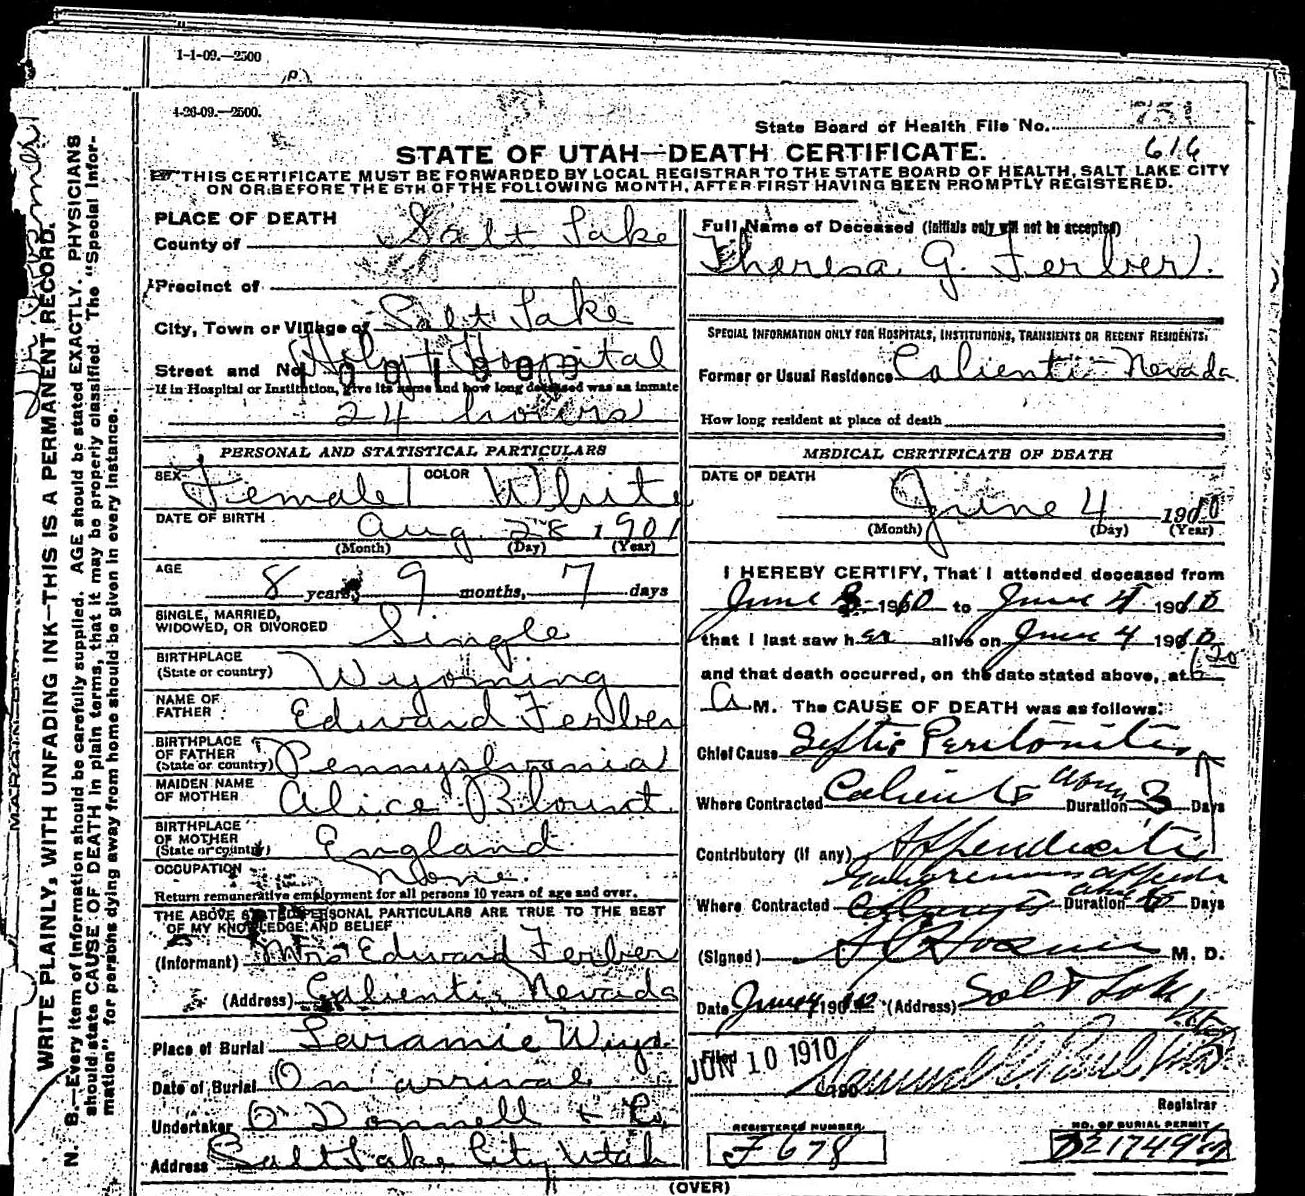 1-1-09.—2500
4-26-09.—2500.
State Board of Health File No.
616
STATE OF UTAH—DEATH CERTIFICATE.
THIS CERTIFICATE MUST BE FORWARDED BY LOCAL REGISTRAR TO THE STATE BOARD OF HEALTH, SALT LAKE CITY
ON OR BEFORE THE 5TH OF THE FOLLOWING MONTH, AFTER FIRST HAVING BEEN PROMPTLY REGISTERED.
WRITE PLAINLY, WITH UNFADING INK—THIS IS A PERMANENT RECORD.
N. B.—Every item of information should be carefully supplied. AGE should be stated EXACTLY. PHYSICIANS
should state CAUSE OF DEATH in plain terms, that it may be properly classified. The "Special Infor-
mation" for persons dying away from home should be given in every instance.
PLACE OF DEATH
County of Salt Lake
Precinct of
City, Town or Village of Salt Lake
Street and No. Holy + Hospital
If in Hospital or Institution, give its name and how long deceased was an inmate
24 hours
PERSONAL AND STATISTICAL PARTICULARS
SEX Female COLOR White
DATE OF BIRTH Aug. 28 1901
(Month) (Day) (Year)
AGE 8 years, 9 months, 7 days
SINGLE, MARRIED,
WIDOWED, OR DIVORCED Single
BIRTHPLACE
(State or country) Wyoming
NAME OF
FATHER Edward Ferber
BIRTHPLACE
OF FATHER
(State or country) Pennyslvania
MAIDEN NAME
OF MOTHER Alice Blount
BIRTHPLACE
OF MOTHER
(State or country) England
OCCUPATION None.
Return remunerative employment for all persons 10 years of age and over.
THE ABOVE STATED PERSONAL PARTICULARS ARE TRUE TO THE BEST
OF MY KNOWLEDGE AND BELIEF
(Informant) Mrs Edward Ferber
(Address) Calienti Nevada
Place of Burial Laramie Wyo.
Date of Burial On arrival
Undertaker O'Donnell + Co.
Address Salt Lake City Utah
Full Name of Deceased (Initials only will not be accepted)
Theresa G. Ferber.
SPECIAL INFORMATION ONLY FOR HOSPITALS, INSTITUTIONS, TRANSIENTS OR RECENT RESIDENTS.
Former or Usual Residence Calienti Nevada
How long resident at place of death
MEDICAL CERTIFICATE OF DEATH
DATE OF DEATH
June 4 1910
(Month) (Day) (Year)
I HEREBY CERTIFY, That I attended deceased from
June 3 1910 to June 4 1910
that I last saw her alive on June 4 1910
and that death occurred, on the date stated above, at 20
A M. The CAUSE OF DEATH was as follows:
Chief Cause Septic Peritonitis
Where Contracted Caliente about Duration 3 Days
Contributory (if any) Appendicitis
Where Contracted Duration Days
(Signed) M. D.
Date June 4 1910 (Address) Salt Lake
Filed
JUN 10 1910
190
Registrar
REGISTERED NUMBER
F 678
NO. OF BURIAL PERMIT
(OVER)